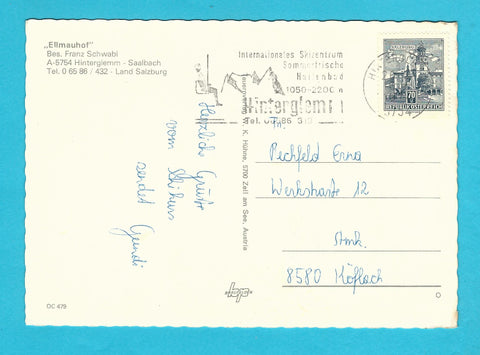 „Ellmauhof"
Bes. Franz Schwabl
A-5754 Hinterglemm - Saalbach
Tel. 0 65 86 / 432 - Land Salzburg
Internationales Skizentrum
Sommerfrische
Hallenbad
1050-2200 m
Hinterglemm
Tel.
5754
70
REPUBLIK ÖSTERREICH
Herzliche Grüße
vom Skikurs
sendet Gundi
K. Hühne, 5700 Zell am See, Austria
Pechfeld Erna
Werkstraße 12
Stmk.
8580 Köflach
bp
OC 479